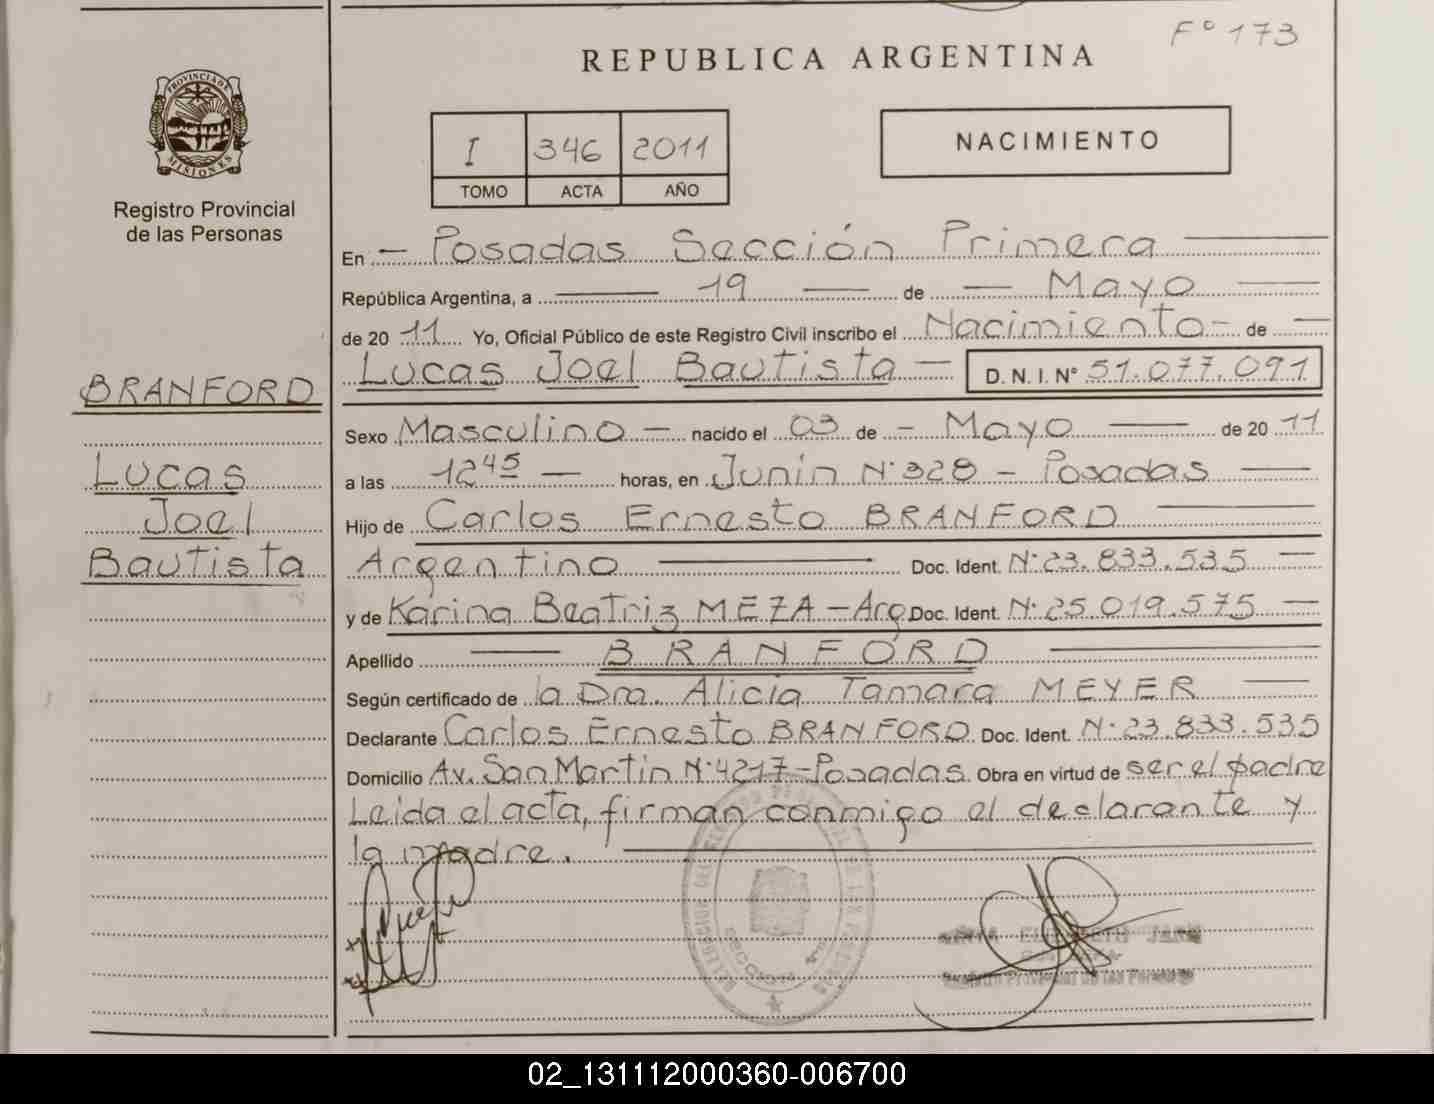 F° 173
REPUBLICA ARGENTINA
PROVINCIA DE MISIONES
Registro Provincial
de las Personas
I 346 2011
TOMO ACTA AÑO
NACIMIENTO
En — Posadas Sección Primera —
República Argentina, a — 19 — de — Mayo —
de 20 11 Yo, Oficial Público de este Registro Civil inscribo el Nacimiento — de —
Lucas Joel Bautista — D. N. I. N° 51.077.091
BRANFORD
Lucas
Joel
Bautista
Sexo Masculino — nacido el 03 de — Mayo — de 20 11
a las 12 45 — horas, en Junín N° 328 - Posadas —
Hijo de Carlos Ernesto BRANFORD —
Argentino — Doc. Ident. N° 23.833.535 —
y de Karina Beatriz MEZA - Arg. Doc. Ident. N° 25.019.575 —
Apellido — BRANFORD —
Según certificado de la Dra. Alicia Tamara MEYER —
Declarante Carlos Ernesto BRANFORD Doc. Ident. N° 23.833.535
Domicilio Av. San Martín N° 4217 - Posadas Obra en virtud de ser el padre
Leída el acta, firman conmigo el declarante y
la madre. —
Registro Provincial de las Personas
02_131112000360-006700